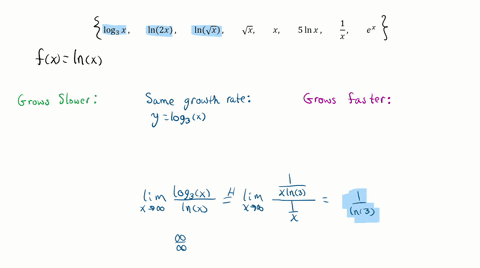 {log₃ x, ln(2x), ln(√x), √x, x, 5 ln x, 1/x, eˣ}
f(x) = ln(x)
Grows Slower: Same growth rate: Grows faster:
y = log₃(x)
lim x→∞ log₃(x)/ln(x) =ᴴ lim x→∞ (1/(x ln(3)))/(1/x) = 1/ln(3)
∞/∞